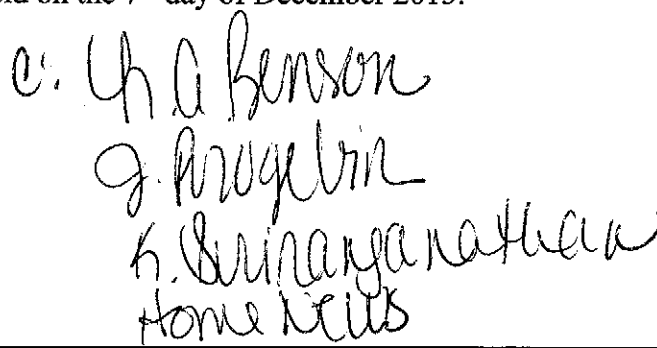 on the 7th day of December 2015.
c: M. A Benson
J. Pirogelvin
K. Sriranganathan
Home News